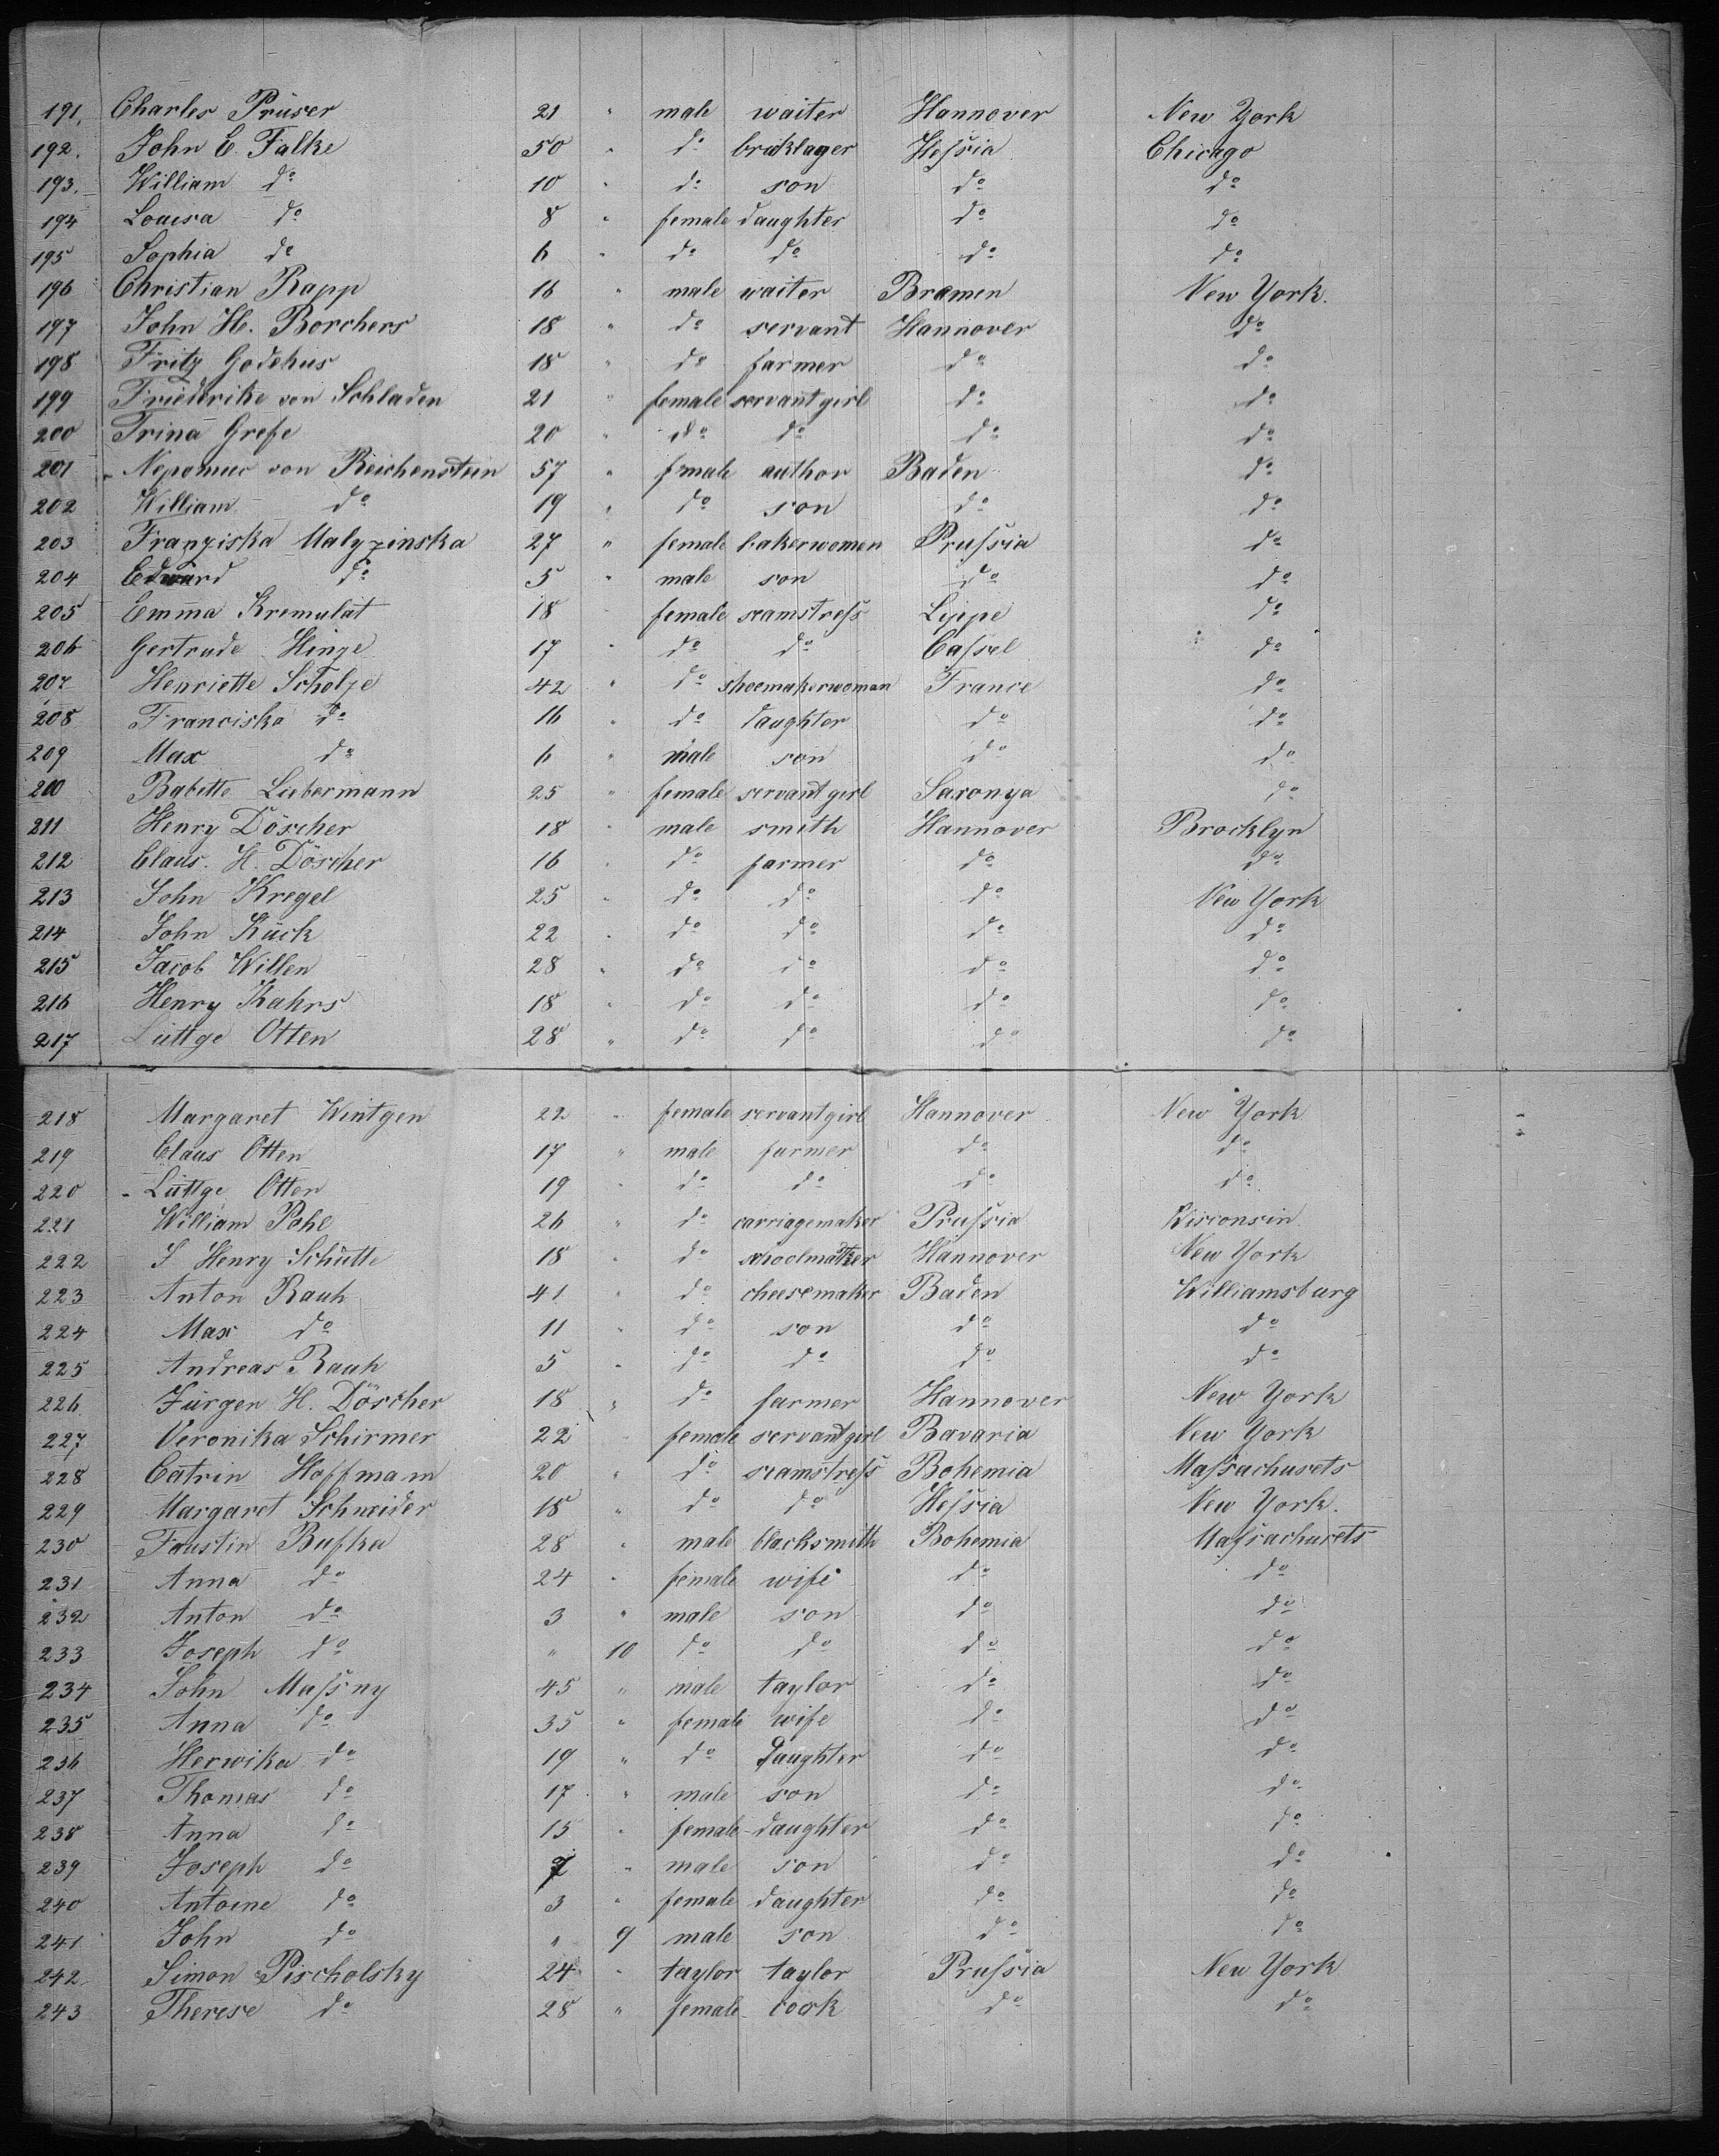 191. Charles Prüser 21 " male waiter Hannover New York
192. John C. Falke 50 " do bricklager Hessia Chicago
193. William do 10 " do son do do
194 Louisa do 8 " female daughter do do
195 Sophia do 6 " do do do do
196 Christian Rapp 16 " male waiter Bremen New York.
197 John H. Borchers 18 " do servant Hannover do
198 Fritz Godehus 18 " do farmer do do
199 Friederike von Schladen 21 " female servantgirl do do
200 Trina Grefe 20 " do do do do
201 Nepomuc von Reichenstein 57 " male author Baden do
202 William do 19 " do son do do
203 Franziska Malyzinska 27 " female bakerwomen Prussia do
204 Edward do 5 " male son do do
205 Emma Kremulat 18 " female seamstress Lippe do
206 Gertrude Hinze 17 " do do Cassel do
207 Henriette Scholze 42 " do shoemakerwoman France do
208 Franciska do 16 " do daughter do do
209 Max do 6 " male son do do
210 Babette Liebermann 25 " female servantgirl Saxonya do
211 Henry Döscher 18 " male smith Hannover Brocklyn
212 Claus. H. Döscher 16 " do farmer do do
213 John Kregel 25 " do do do New York
214 John Kück 22 " do do do do
215 Jacob Willen 28 " do do do do
216 Henry Kahrs 18 " do do do do
217 Lüttge Otten 28 " do do do do
218 Margaret Wintgen 22 " female servantgirl Hannover New York
219 Claus Otten 17 " male farmer do do
220 Lüttge Otten 19 " do do do do
221 William Pohl 26 " do carriagemaker Prussia Wisconsin
222 J Henry Schütte 18 " do Hannover New York
223 Anton Rauh 41 " do cheesemaker Baden Williamsburg
224 Max do 11 " do son do do
225 Andreas Rauh 5 " do do do do
226 Jürgen H. Döscher 18 " do farmer Hannover New York
227 Veronika Schirmer 22 " female servantgirl Bavaria New York
228 Catrin Hoffmann 20 " do seamstress Bohemia Massachusets
229 Margaret Schneider 18 " do do Hessia New York.
230 Faustin Bufka 28 " male blacksmith Bohemia Massachusets
231 Anna do 24 " female wife do do
232 Anton do 3 " male son do do
233 Joseph do " 10 do do do do
234 John Massny 45 " male taylor do do
235 Anna do 35 " female wife do do
236 Herwika do 19 " do daughter do do
237 Thomas do 17 " male son do do
238 Anna do 15 " female daughter do do
239 Joseph do 7 " male son do do
240 Antoine do 3 " female daughter do do
241 John do " 9 male son do do
242 Simon Pischolsky 24 " taylor taylor Prussia New York
243 Therese do 28 " female cook do do